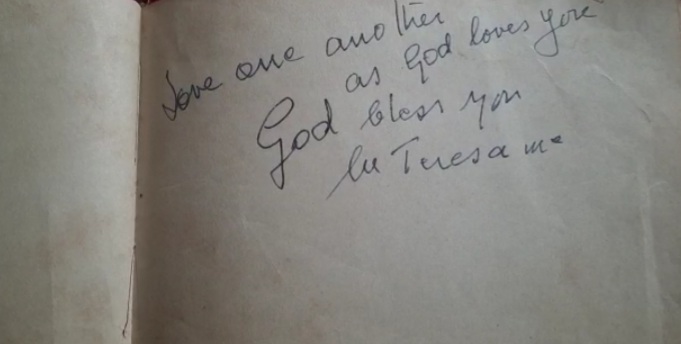 Love one another
as God loves you
God bless you
lu Teresa mc